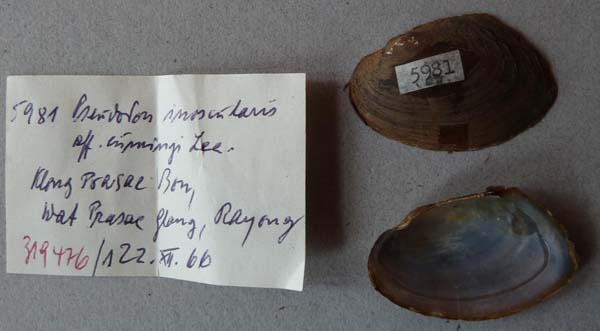 5981 Pseudodon inoscularis
aff. cumingi Lea.
Klong Prasae Bon,
Wat Prasae Glang, Rayong
319476/1 22. XII. 66
5981